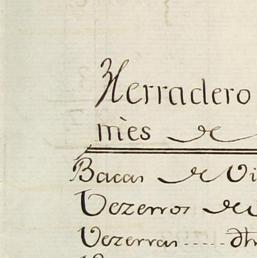 Herradero
mes de
Bacas de Vi
Vezerros de
Vezerras ..... dh